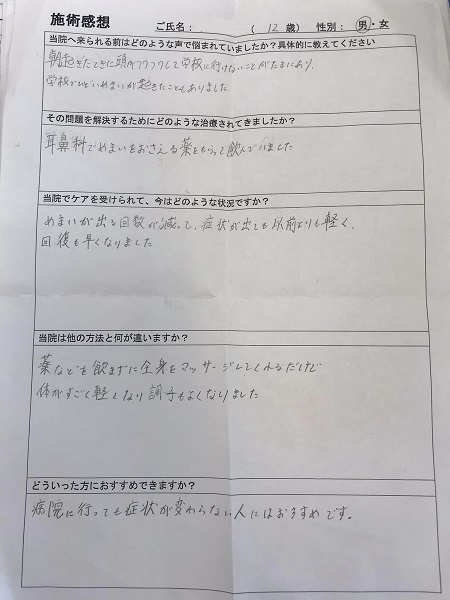 施術感想 ご氏名： （ 12 歳） 性別： 男・女
当院へ来られる前はどのような声で悩まれていましたか？具体的に教えてください
朝起きたときに頭がフラフラして学校に行けないことがたまにあり、
学校でひどいめまいが起きたこともありました
その問題を解決するためにどのような治療されてきましたか？
耳鼻科でめまいをおさえる薬をもらって飲んでいました
当院でケアを受けられて、今はどのような状況ですか？
めまいが出る回数が減って、症状が出ても以前よりも軽く、
回復も早くなりました
当院は他の方法と何が違いますか？
薬なども飲まずに全身をマッサージしてくれるだけで
体がすごく軽くなり調子もよくなりました
どういった方におすすめできますか？
病院に行っても症状が変わらない人にはおすすめです。